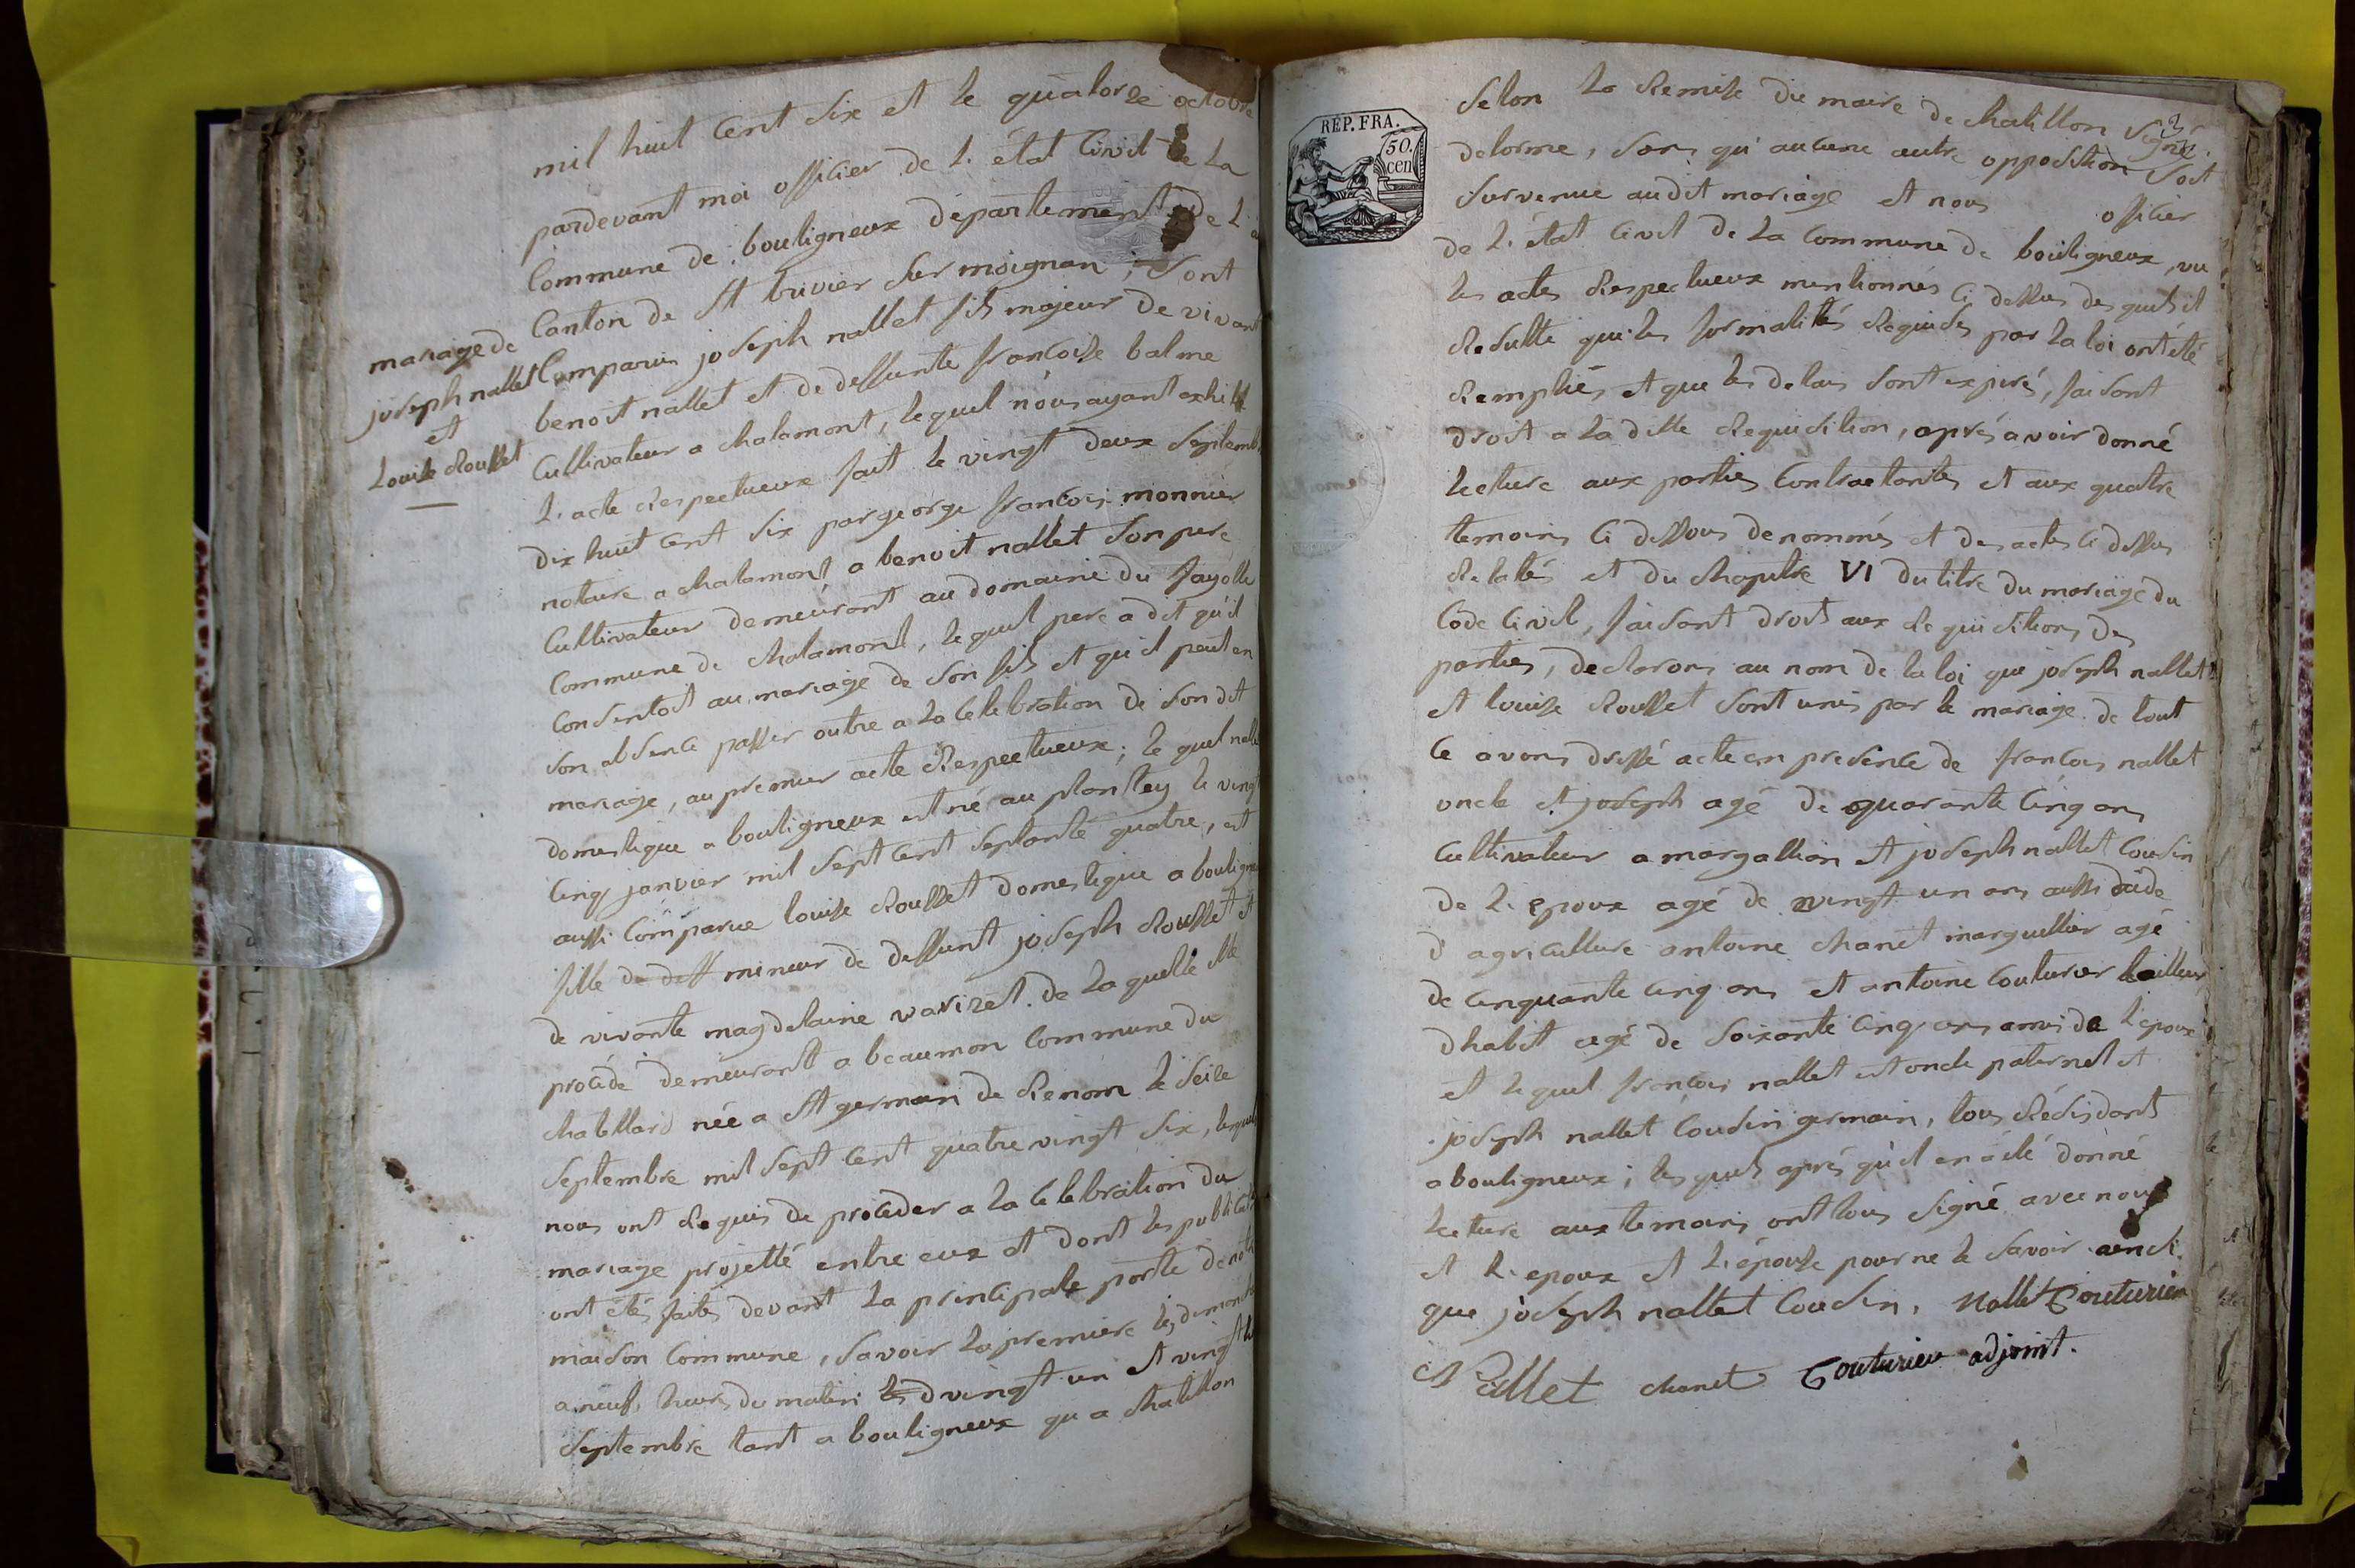 mil huit cent six et le quatorze octobre
pardevant moi officier de l'état civil de la
Commune de bouligneux département de l'a
Canton de St trivier sur moignan ; sont
mariage de
joseph nallet
et
Louise Rousset
Comparus joseph nallet fils majeur de vivant
benoit nallet et de deffunte francoise balme
Cultivateur a chalamont, lequel nous ayant exhibé
l'acte Respectueux fait le vingt deux septemb
dix huit cent six par george francois monnier
notaire a chalamont a benoit nallet son pere
Cultivateur demeurant au domaine du fayolle
Commune de chalamont, lequel pere a dit qu'il
Consentoit au mariage de son fils et qu'il peut en
son absence passer outre a la Celebration de son dit
mariage, au premier acte Respectueux ; le quel nall
domestique a bouligneux est né au plantey le vingt
Cinq janvier mil sept cent septante quatre, est
aussi Comparue louise Rousset domestique a bouligne
fille de deff mineur de deffunt joseph Rousset et
de vivante magdelaine varizet. de la quelle elle
procède demeurant a beaumon Commune du
chatellard née a St germain de Renom le seize
septembre mil sept cent quatre vingt six, lesquels
nous ont Requis de proceder a la Celebration du
mariage projetté entre eux et dont les publicat
ont étés faites devant la principale porte de notre
maison Commune, savoir la premiere les dimanche
a neuf heures du matin les d vingt un et vingt h
septembre tant a bouligneux qu a chatillon
REP. FRA.
50.
cen
selon la Remise du maire de chatillon signé
delorme, sans qu'aucune autre opposition soit
survenue audit mariage et nous officier
de l'état civil de la Commune de bouligneux, vu
les actes Respectueux mentionnés ci dessus desquels il
Resulte que les formalités Requises par la loi ont été
Remplies, et que les delais sont expirés, faisant
droit a la ditte Requisition, après avoir donné
lecture aux parties Contractantes et aux quatre
temoins ci dessous denommés et des actes ci dessus
Relatés et du chapitre VI du titre du mariage du
Code Civil, faisant droit aux Requisitions des
parties, declarons au nom de la loi que joseph nallet
et louise Rousset sont unis par le mariage. de tout
ce avons dressé acte en presence de francois nallet
oncle et joseph agé de quarante cinq ans
Cultivateur a margallion et joseph nallet Cousin
de l'epoux agé de vingt un ans aussi aide
d'agriculture antoine chanet marguillier agé
de cinquante cinq ans et antoine Couturier tailleur
dhabit agé de soixante cinq ans amis de l'epoux
et lequel francois nallet est oncle paternel et
joseph nallet Cousin germain, tous Résidants
a bouligneux ; les quels après qu'il en a été donné
lecture aux temoins ont tous signé avec nous
et l'epoux et l'épouse pour ne le savoir ainsi
que joseph nallet Cousin. Nallet Couturier
Nallet chanet Couturier adjoint.